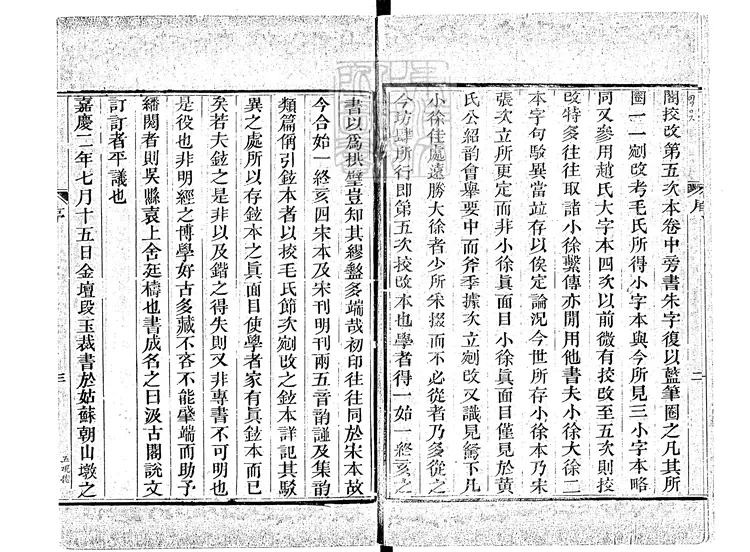 閣挍改第五次本卷中旁書朱字復以藍筆圈之凡其所
圈一一剜改考毛氏所得小字本與今所見三小字本略
同又參用趙氏大字本四次以前微有挍改至五次則挍
改特多往往取諸小徐繫傳亦閒用他書夫小徐大徐二
本字句駮異當並存以俟定論況今世所存小徐本乃宋
張次立所更定而非小徐眞面目小徐眞面目僅見於黃
氏公紹韵會舉要中而斧季據次立剜改又識見駑下凡
小徐佳處遠勝大徐者少所采掇而不必從者乃多從之
今坊肆所行卽第五次挍改本也學者得一始一終亥之
二
書以爲拱璧豈知其繆盭多端哉初印往往同於宋本故
今合始一終亥四宋本及宋刊明刊兩五音韵譜及集韵
類篇偁引鉉本者以挍毛氏節次剜改之鉉本詳記其駮
異之處所以存鉉本之眞面目使學者家有眞鉉本而已
矣若夫鉉之是非以及鍇之得失則又非專書不可明也
是役也非明經之博學好古多藏不吝不能肇端而助予
繙閱者則吳縣袁上舍廷檮也書成名之曰汲古閣說文
訂訂者平議也
嘉慶二年七月十五日金壇段玉裁書於姑蘇朝山墩之
序
三
五硯樓